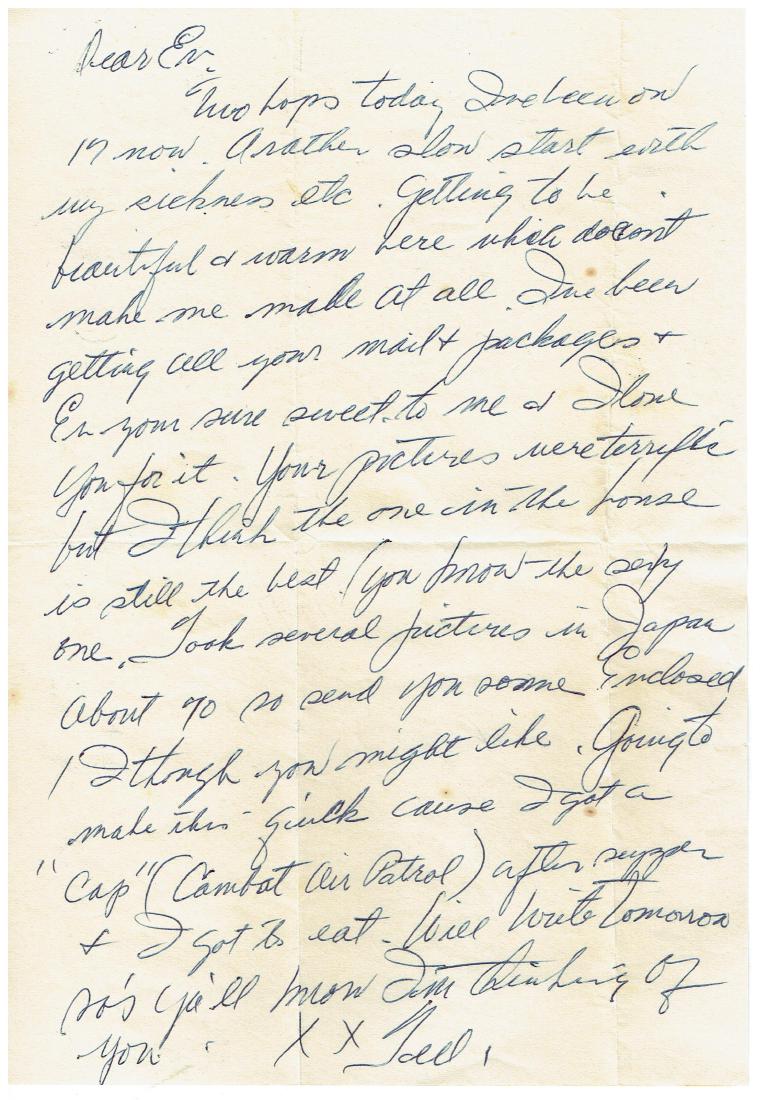 Dear Ev,
Two hops today I've been on
17 now. A rather slow start with
my sickness etc. Getting to be
beautiful & warm here which doesn't
make me made at all. I've been
getting all your mail & packages &
Ev your sure sweet to me & I love
you for it. Your pictures were terrific
but I think the one in the house
is still the best (you know the sexy
one. Took several pictures in Japan
About 70 so send you some Enclosed
1 I though you might like. Going to
make this quick cause I got a
"Cap" (Combat Air Patrol) after supper
& I got to eat. Will Write Tomorrow
so's ya'll know I'm thinking of
you. X X Ted.